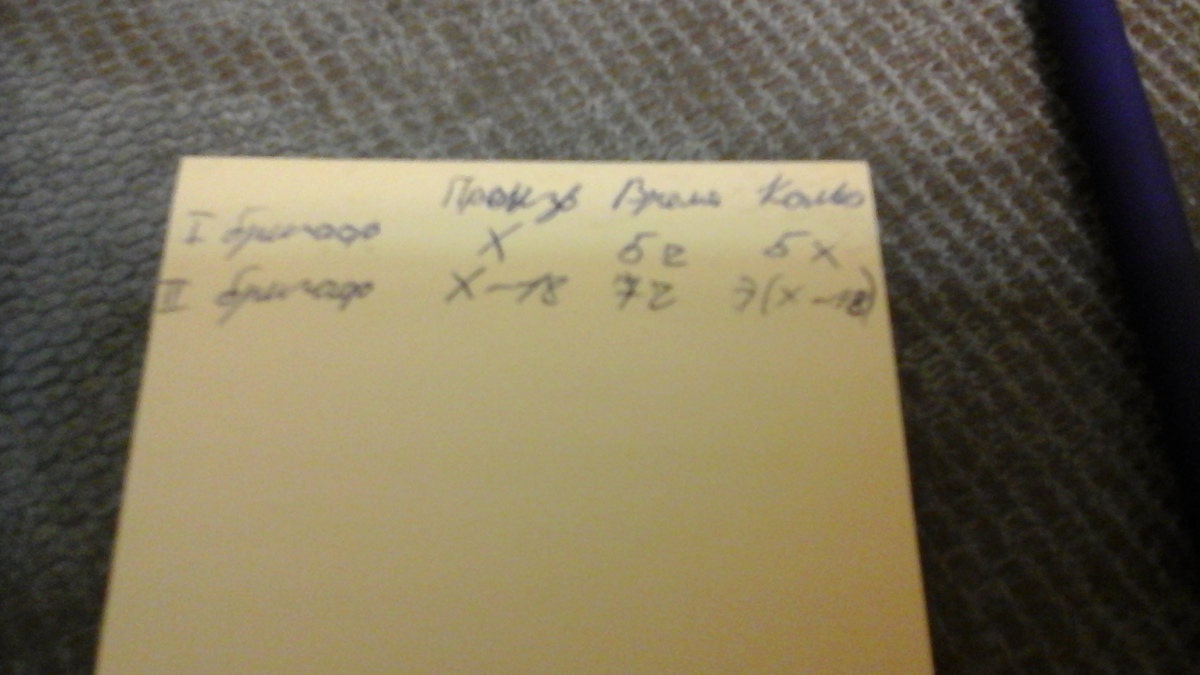 Произв Время Кол-во
I бригада X 5ч 5x
II бригада X-18 7ч 7(x-18)